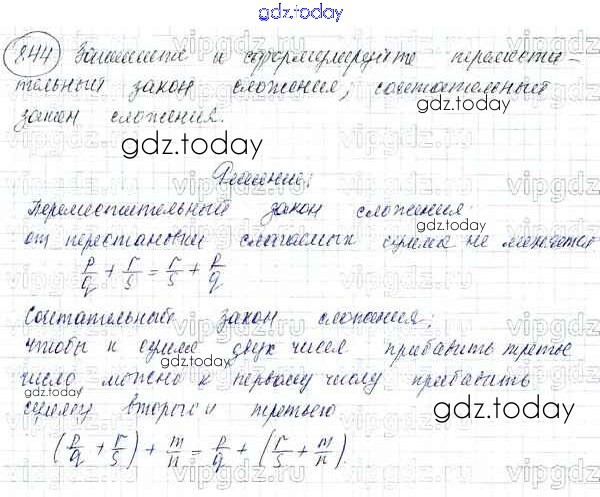 gdz.today
844 Запишите и сформулируйте перемести-
тельный закон сложения, сочетательный
gdz.today
закон сложения.
gdz.today
Решение:
Переместительный закон сложения:
от перестановки слагаемых сумма не меняется
p/q + r/s = r/s + p/q
gdz.today
Сочетательный закон сложения:
чтобы к сумме двух чисел прибавить третье
gdz.today
число можно к первому числу прибавить
сумму второго и третьего
gdz.today
(p/q + r/s) + m/n = p/q + (r/s + m/n).